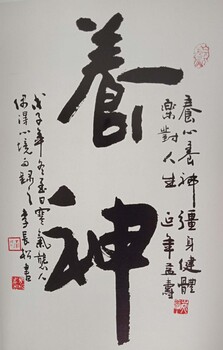 養神
養心養神彊身健體
樂對人生 延年益壽
戊子年冬至日寒氣襲人
偶得心境而錄之 李長松書